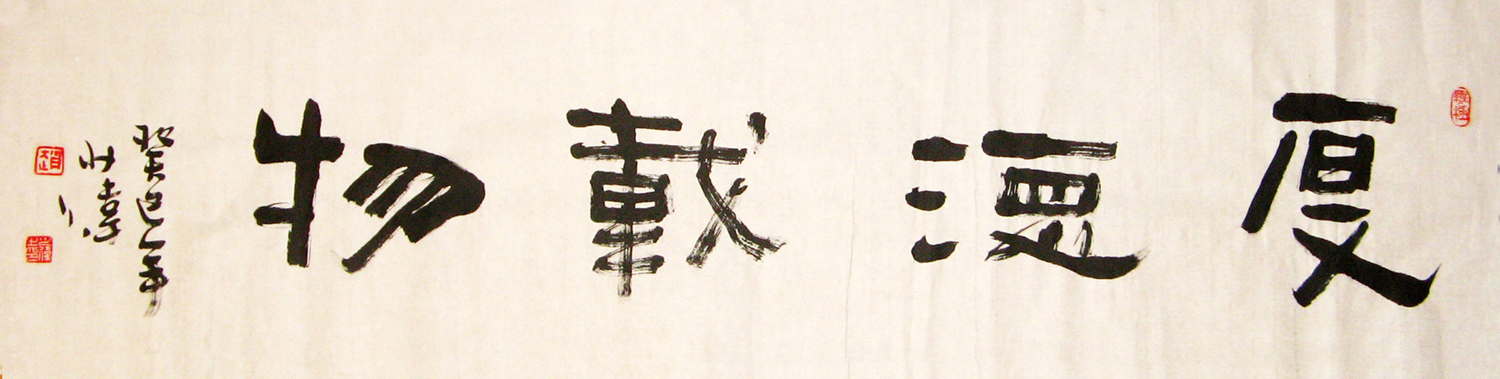 厚德載物
癸巳年